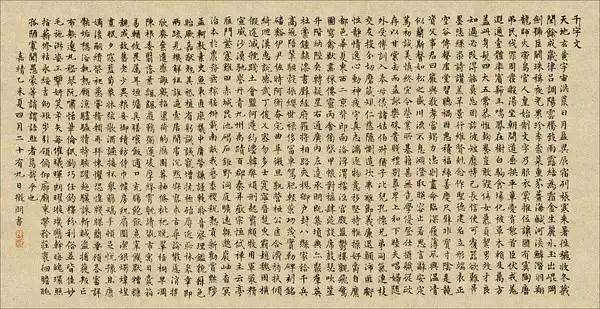 千字文
天地玄黃宇宙洪荒日月盈昃辰宿列張寒來暑往秋收冬藏
閏餘成歲律呂調陽雲騰致雨露結為霜金生麗水玉出崑岡
劍號巨闕珠稱夜光果珍李柰菜重芥薑海鹹河淡鱗潛羽翔
龍師火帝鳥官人皇始制文字乃服衣裳推位讓國有虞陶唐
弔民伐罪周發殷湯坐朝問道垂拱平章愛育黎首臣伏戎羌
遐邇壹體率賓歸王鳴鳳在樹白駒食場化被草木賴及萬方
蓋此身髮四大五常恭惟鞠養豈敢毀傷女慕貞絜男效才良
知過必改得能莫忘罔談彼短靡恃己長信使可覆器欲難量
墨悲絲染詩讚羔羊景行維賢克念作聖德建名立形端表正
空谷傳聲虛堂習聽禍因惡積福緣善慶尺璧非寶寸陰是競
資父事君曰嚴與敬孝當竭力忠則盡命臨深履薄夙興溫凊
似蘭斯馨如松之盛川流不息淵澄取映容止若思言辭安定
篤初誠美慎終宜令榮業所基籍甚無竟學優登仕攝職從政
存以甘棠去而益詠樂殊貴賤禮別尊卑上和下睦夫唱婦隨
外受傅訓入奉母儀諸姑伯叔猶子比兒孔懷兄弟同氣連枝
交友投分切磨箴規仁慈隱惻造次弗離節義廉退顛沛匪虧
性靜情逸心動神疲守真志滿逐物意移堅持雅操好爵自縻
都邑華夏東西二京背邙面洛浮渭據涇宮殿盤鬱樓觀飛驚
圖寫禽獸畫彩仙靈丙舍傍啟甲帳對楹肆筵設席鼓瑟吹笙
升階納陛弁轉疑星右通廣內左達承明既集墳典亦聚群英
杜稾鍾隸漆書壁經府羅將相路俠槐卿戶封八縣家給千兵
高冠陪輦驅轂振纓世祿侈富車駕肥輕策功茂實勒碑刻銘
磻溪伊尹佐時阿衡奄宅曲阜微旦孰營桓公匡合濟弱扶傾
綺迴漢惠說感武丁俊乂密勿多士寔寧晉楚更霸趙魏困橫
假途滅虢踐土會盟何遵約法韓弊煩刑起翦頗牧用軍最精
宣威沙漠馳譽丹青九州禹跡百郡秦并嶽宗恒岱禪主云亭
雁門紫塞雞田赤城昆池碣石鉅野洞庭曠遠緜邈巖岫杳冥
治本於農務茲稼穡俶載南畝我藝黍稷稅熟貢新勸賞黜陟
孟軻敦素史魚秉直庶幾中庸勞謙謹敕聆音察理鑑貌辨色
貽厥嘉猷勉其祗植省躬譏誡寵增抗極殆辱近恥林皋幸即
兩疏見機解組誰逼索居閒處沉默寂寥求古尋論散慮逍遙
欣奏累遣慼謝歡招渠荷的歷園莽抽條枇杷晚翠梧桐早凋
陳根委翳落葉飄颻遊鵾獨運凌摩絳霄耽讀翫市寓目囊箱
易輶攸畏屬耳垣牆具膳餐飯適口充腸飽飫烹宰飢厭糟糠
親戚故舊老少異糧妾御績紡侍巾帷房紈扇圓潔銀燭煒煌
晝眠夕寐藍筍象床弦歌酒讌接杯舉觴矯手頓足悅豫且康
嫡後嗣續祭祀烝嘗稽顙再拜悚懼恐惶牋牒簡要顧答審詳
骸垢想浴執熱願涼驢騾犢特駭躍超驤誅斬賊盜捕獲叛亡
布射遼丸嵇琴阮嘯恬筆倫紙鈞巧任釣釋紛利俗並皆佳妙
毛施淑姿工顰妍笑年矢每催曦暉朗曜璇璣懸斡晦魄環照
指薪修祜永綏吉劭矩步引領俯仰廊廟束帶矜莊徘徊瞻眺
孤陋寡聞愚蒙等誚謂語助者焉哉乎也
嘉靖乙未夏四月二十有九日徵明書